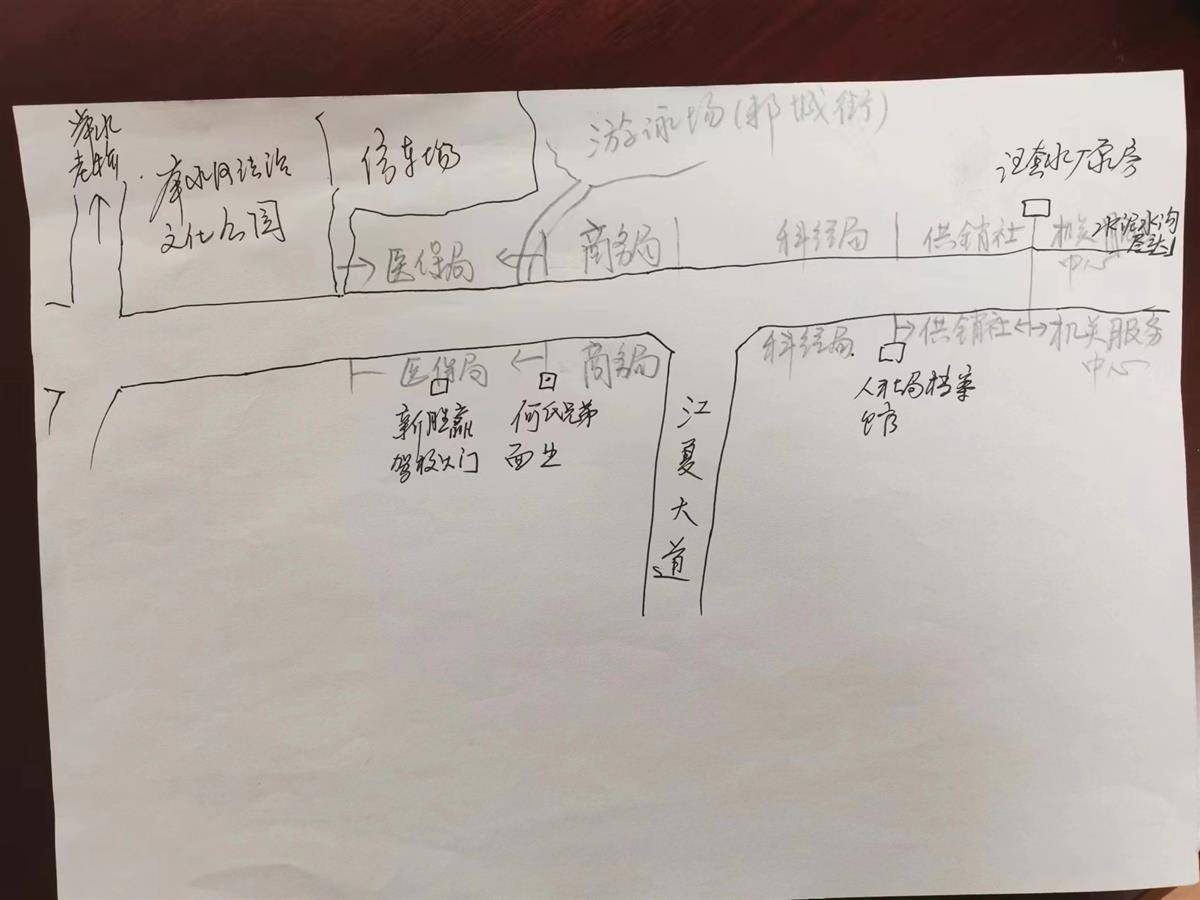 举水
老桥
举水河法治
文化公园
停车场
游泳场(邾城街)
汪套水厂泵房
医保局
商务局
科经局
供销社
机关
中心
水泥水沟
尽头
医保局
商务局
科经局
供销社
机关服务
中心
新胜赢
驾校大门
何氏兄弟
面庄
人社局档案
馆
江
夏
大
道